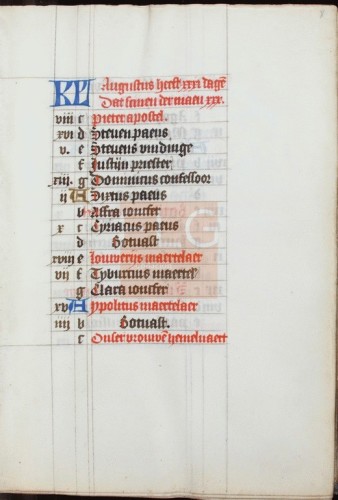 KL Augustus heeft xxxi daghē
Dat scinen der maen xxx.
viii c Pieter apostel.
xvi d Steuen paeus
v. e Steuens vindinge
f Justijn priester
xiii. g Dominicus confessoor
ii A Sixtus paeus
b Affra ioncfer
x c Cyriacus paeus
d Sotuast
xviii e Louwerijs maertelaer
vii f Tyburcius maertel
g Clara ioncfer
xv A Ypolitus maertelaer
iiii b Sotuast.
c Onser vrouwē hemelvaert